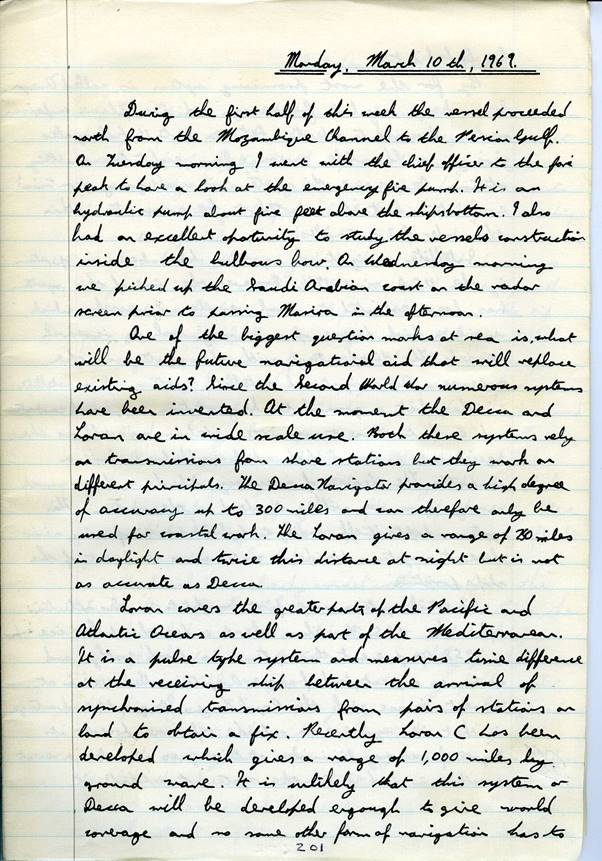 Monday, March 10th, 1969.
During the first half of this week the vessel proceeded
north from the Mozambique Channel to the Persian Gulf.
On Tuesday morning I went with the chief officer to the fore
peak to have a look at the emergency fire pump. It is an
hydraulic pump about five feet above the ships bottom. I also
had an excellent oportunity to study the vessels construction
inside the bulbous bow. On Wednesday morning
we picked up the Saudi Arabian coast on the radar
screen prior to passing Masira in the afternoon.
One of the biggest question marks at sea is, what
will be the future navigational aid that will replace
existing aids? Since the Second World War numerous systems
have been invented. At the moment the Decca and
Loran are in wide scale use. Both these systems rely
on transmissions from shore stations but they work on
different principals. The Decca Navigator provides a high degree
of accuracy up to 300 miles and can therefore only be
used for coastal work. The Loran gives a range of miles
in daylight and twice this distance at night but is not
as accurate as Decca.
Loran covers the greater parts of the Pacific and
Atlantic Oceans as well as part of the Mediterranean.
It is a pulse type system and measures time difference
at the receiving ship between the arrival of
synchronised transmissions from pairs of stations on
land to obtain a fix. Recently Loran C has been
developed which gives a range of 1,000 miles by
ground wave. It is unlikely that this system or
Decca will be developed enough to give world
coverage and so some other form of navigation has to
201